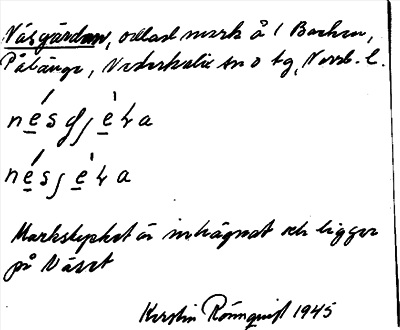 Näsgärdan, odlad mark å 1 Backen,
Påbänge, Nederkalix sn o tg, Norrb. l.
nésgjèka
nésjèka
Markstycket är inhägnat och ligger
på Näset
Kerstin Rönnquist 1945